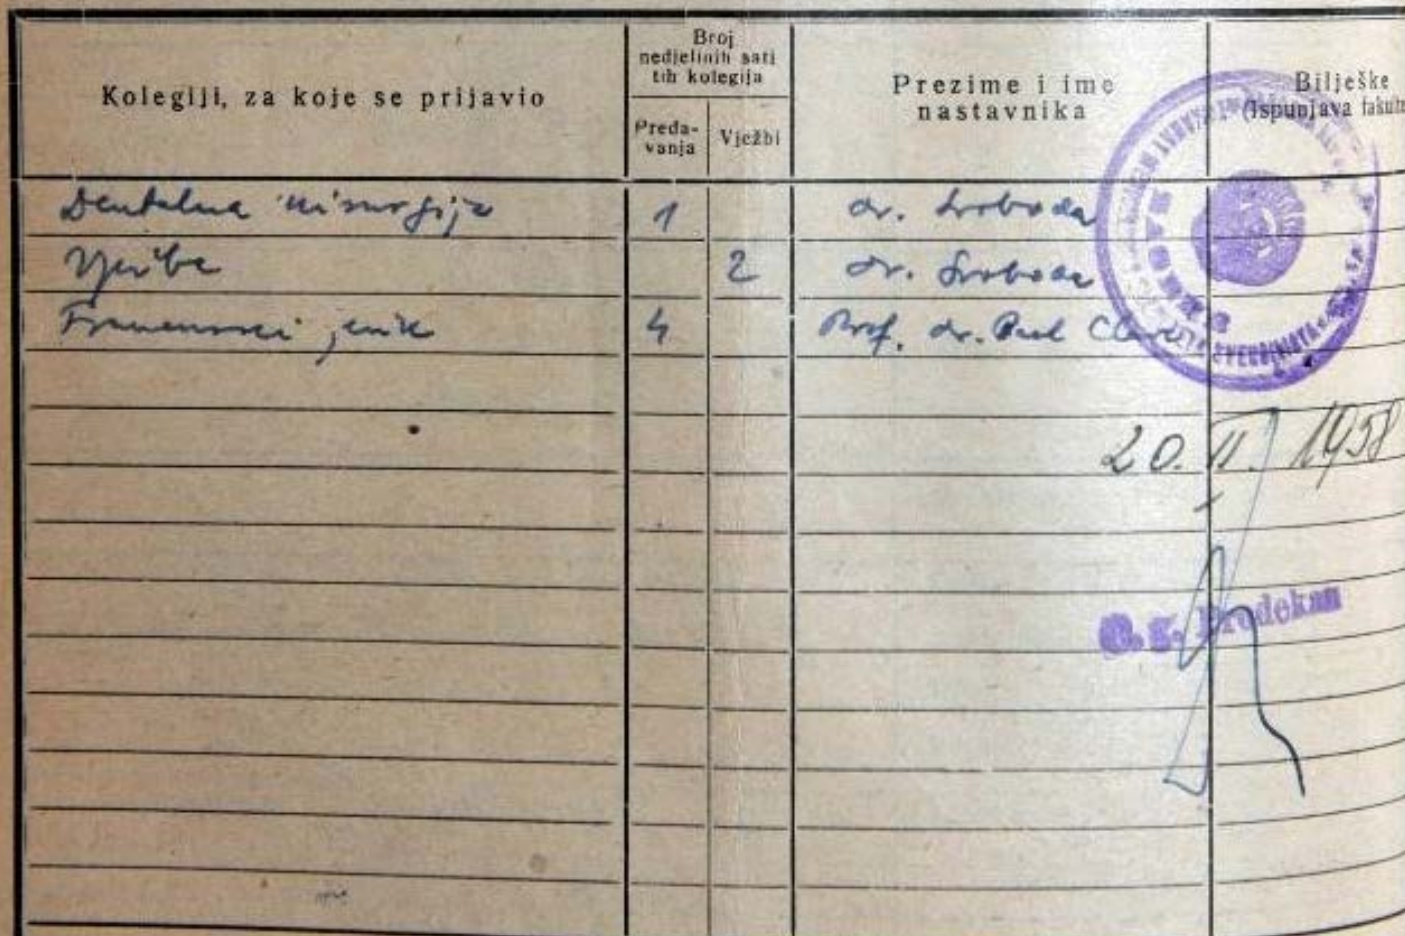 Kolegiji, za koje se prijavio
Broj
nedjeljnih sati
tih kolegija
Preda-
vanja
Vježbi
Prezime i ime
nastavnika
Bilješke
(Ispunjava fakult
Dentalna kirurgija 1 dr. Svoboda
Vježbe 2 dr. Svoboda
Francuski jezik 4 Prof. dr. Paul
20. II. 1958
Prodekan